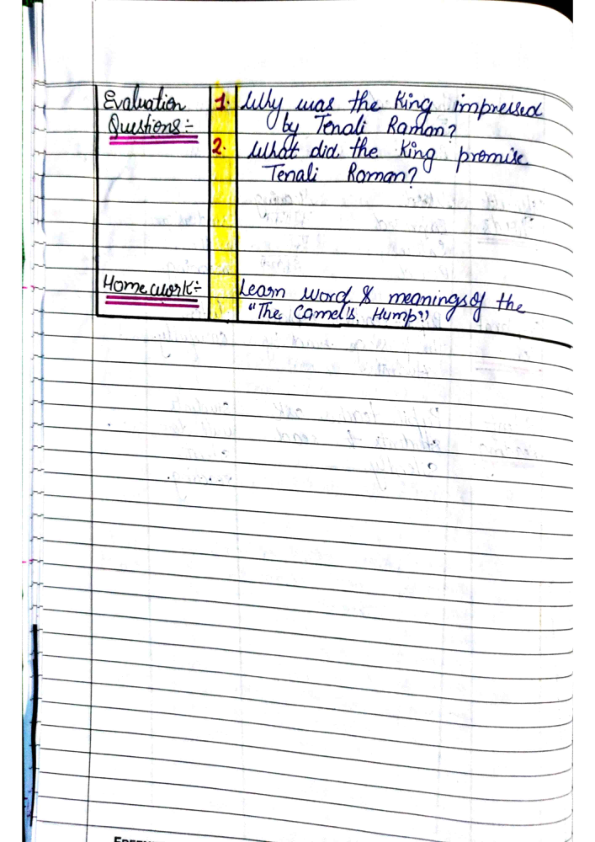 Evaluation Questions :-
1. Why was the King impressed
by Tenali Raman?
2. What did the King promise
Tenali Raman?
Homework :-
Learn word & meanings of the
"The Camel's Hump"